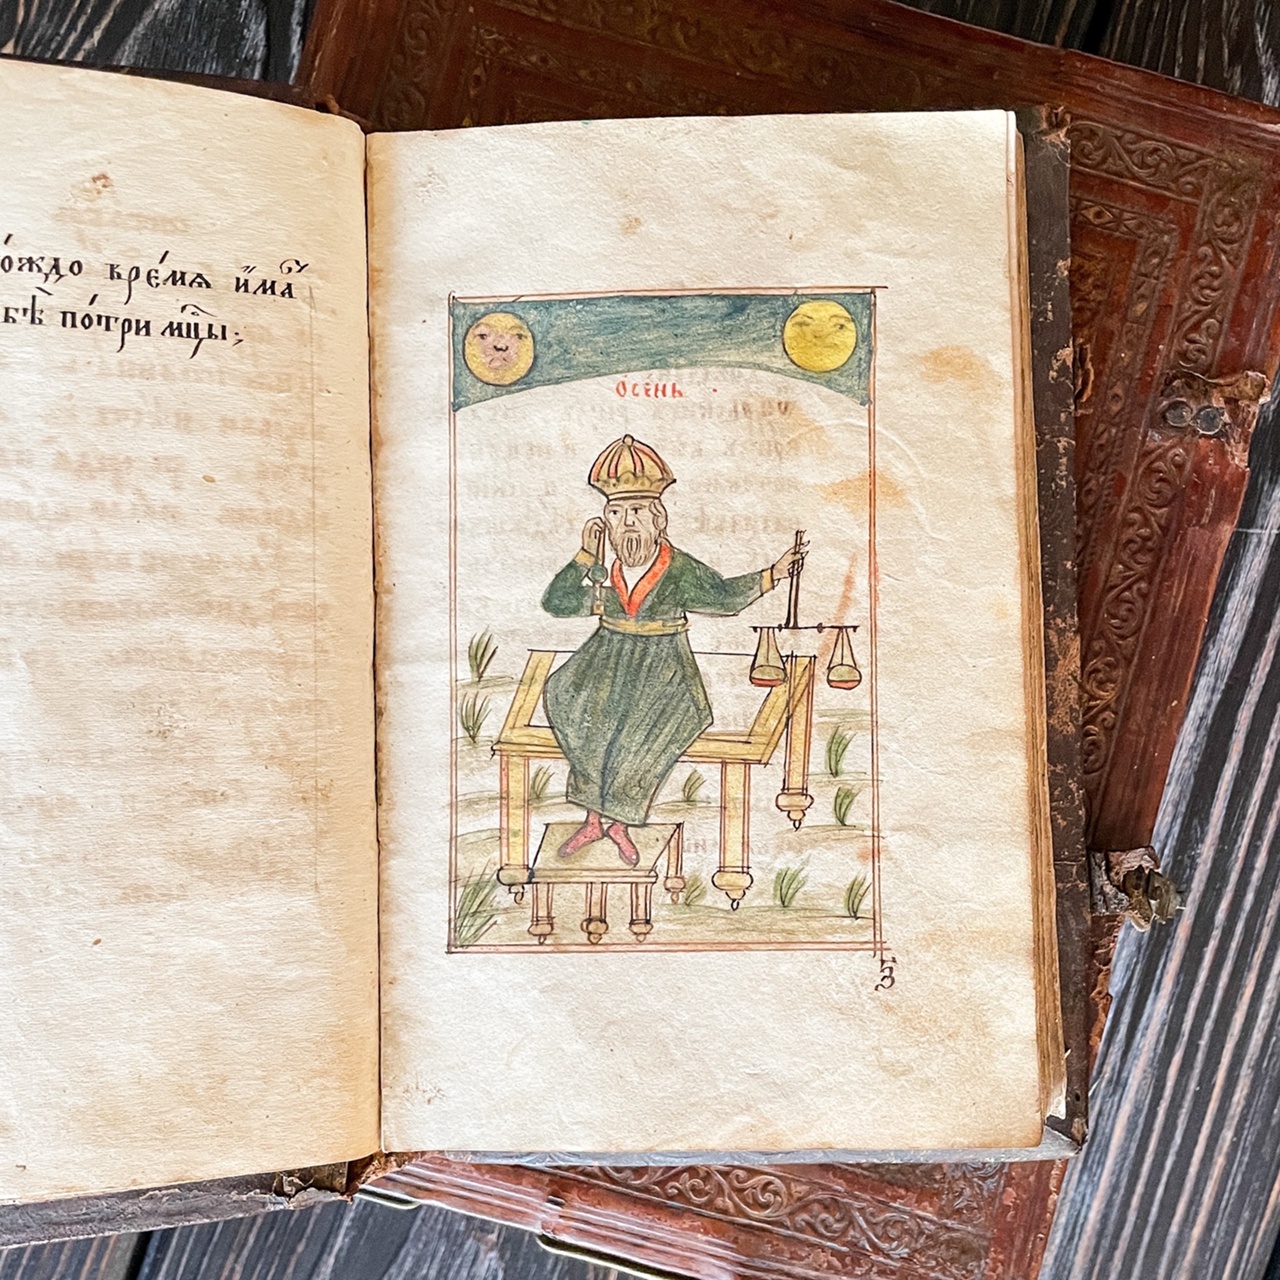 ождо вре́мѧ и҆́маⷮ
бѣ по́три мцы̑;
О҆СЕНЬ
з